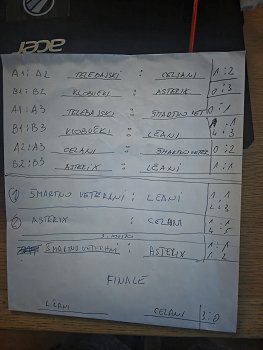 acer
A1 : A2 TELEBAJSKI : CELJANI 1 : 2
B1 : B2 KLOBUČKI : ASTERIX 0 : 3
A1 : A3 TELEBAJSKI : ŠMARTNO VET 0 : 1
B1 : B3 KLOBUČKI : LEANI 4 : 3
A2 : A3 CELANI : ŠMARTNO VETER 0 : 2
B2 : B3 ASTERIX : LEANI 1 : 1
1 ŠMARTNO VETERANI : LEANI 1 : 1
2 : 3
2 ASTERIX : CELANI 1 : 1
4 : 5
3. MESTO
ŠMARTNO VETERANI : ASTERIX 1 : 1
1 : 2
FINALE
LEANI CELANI 3 : 0